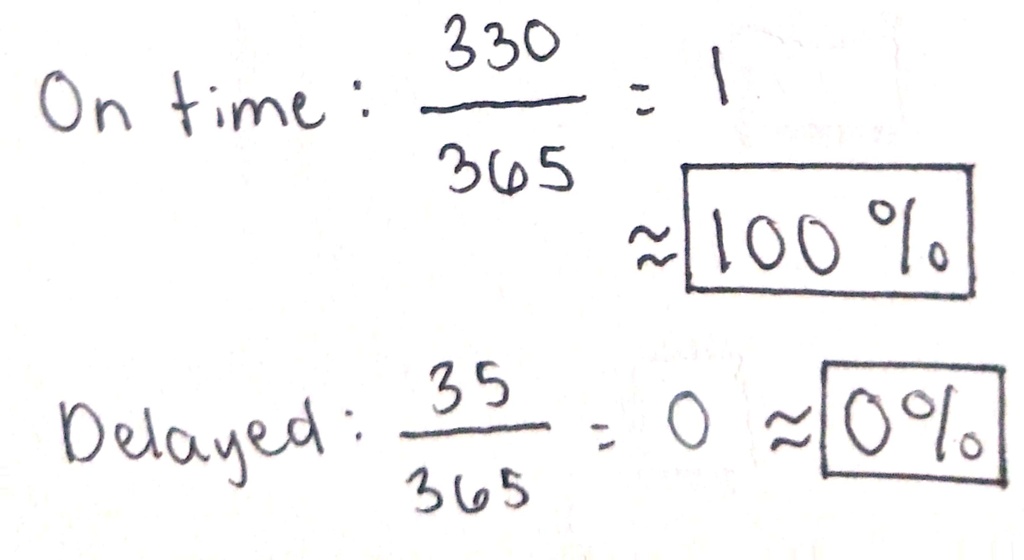 On time: 330/365 = 1
≈ 100%
Delayed: 35/365 = 0 ≈ 0%